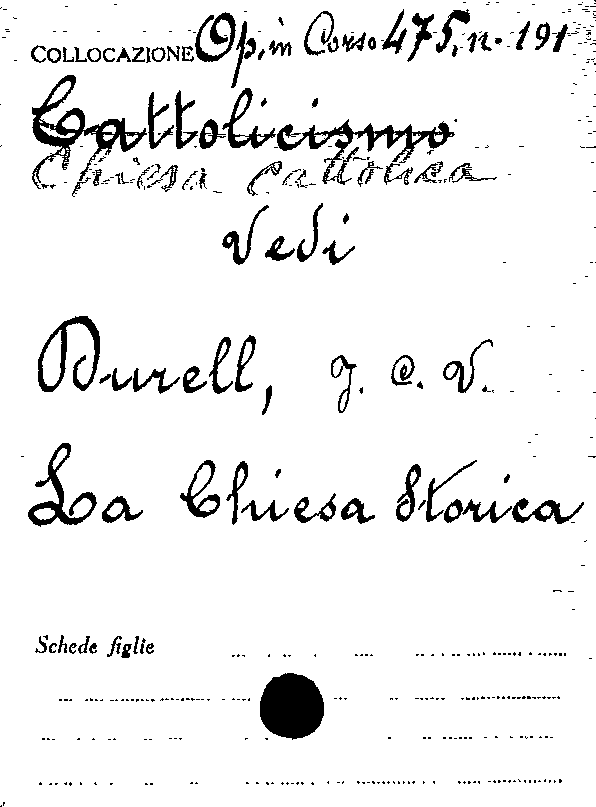 COLLOCAZIONE Op. in Corso 475, n. 191
Cattolicismo
Chiesa cattolica
Vedi
Durell, J. C. V.
La Chiesa Storica
Schede figlie